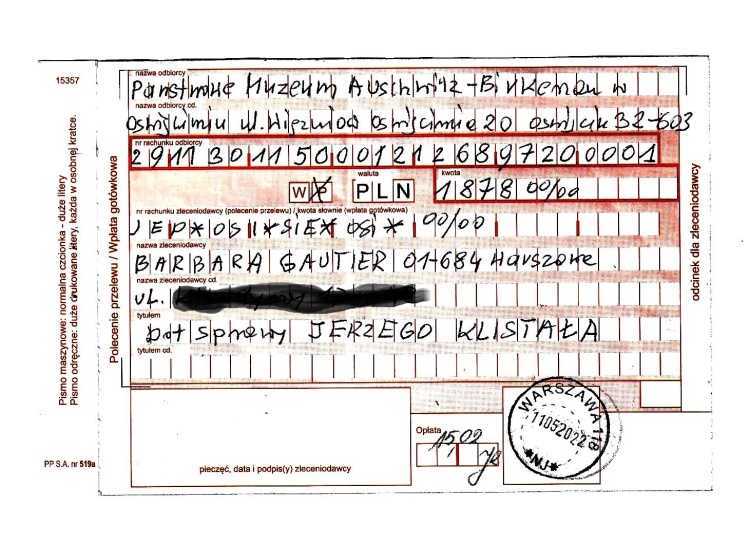 15357
nazwa odbiorcy
Państwowe Muzeum Auschwitz-Birkenau w
nazwa odbiorcy cd.
Oświęcimiu ul. Więźniów Oświęcimia 20 32-603
nr rachunku odbiorcy
29113011500012126897200001
W P
waluta
PLN
kwota
1878 00/00
nr rachunku zleceniodawcy (polecenie przelewu) / kwota słownie (wpłata gotówkowa)
JED*OSI*SIE*OSI* 00/00
nazwa zleceniodawcy
BARBARA GAUTIER 01-684 Warszawa
nazwa zleceniodawcy cd.
ul.
tytułem
Dot sprawy JERZEGO KLISTAŁA
tytułem cd.
Polecenie przelewu / Wpłata gotówkowa
Pismo maszynowe: normalna czcionka - duże litery
Pismo odręczne: duże drukowane litery, każda w osobnej kratce.
odcinek dla zleceniodawcy
pieczęć, data i podpis(y) zleceniodawcy
Opłata
1502
WARSZAWA 118
11052022
*NJ*
PP S.A. nr 519a